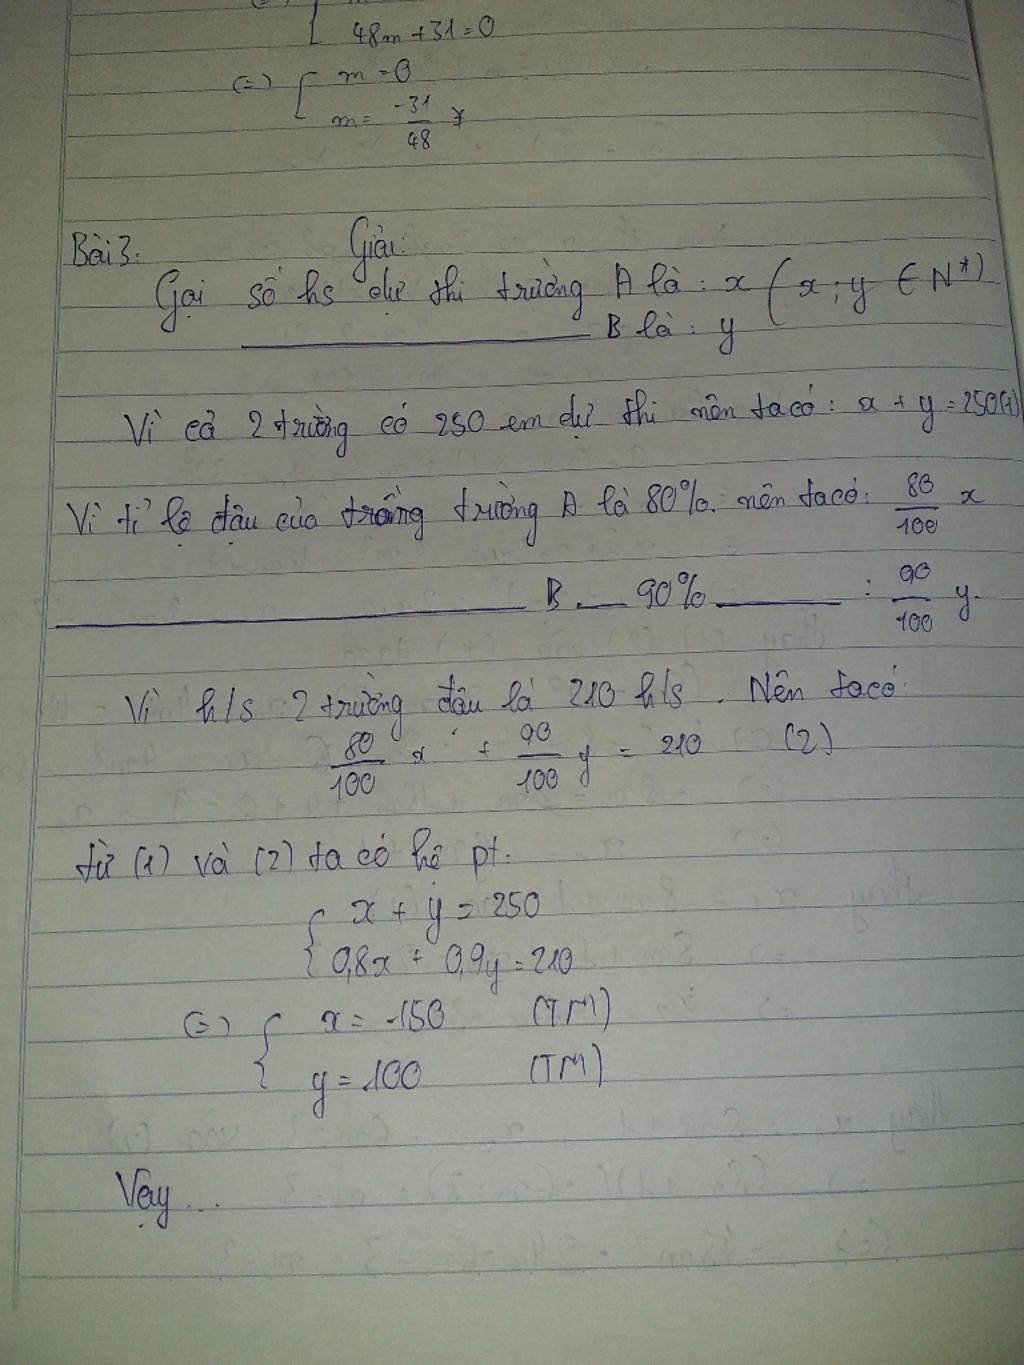 48m + 31 = 0
(=) [ m = 0
m = -31/48
Bài 3. Giải:
Gọi số hs dự thi trường A là : x ( x ; y ∈ N*)
B là : y
Vì cả 2 trường có 250 em dự thi nên ta có : x + y = 250 (1)
Vì tỉ lệ đậu của trường A là 80%. nên ta có : 80/100 x
B 90% : 90/100 y.
Vì h/s 2 trường đậu là 210 h/s . Nên ta có
80/100 x + 90/100 y = 210 (2)
từ (1) và (2) ta có hệ pt.
{ x + y = 250
0,8x + 0,9y = 210
(=) { x = 150 (TM)
y = 100 (TM)
Vậy ...